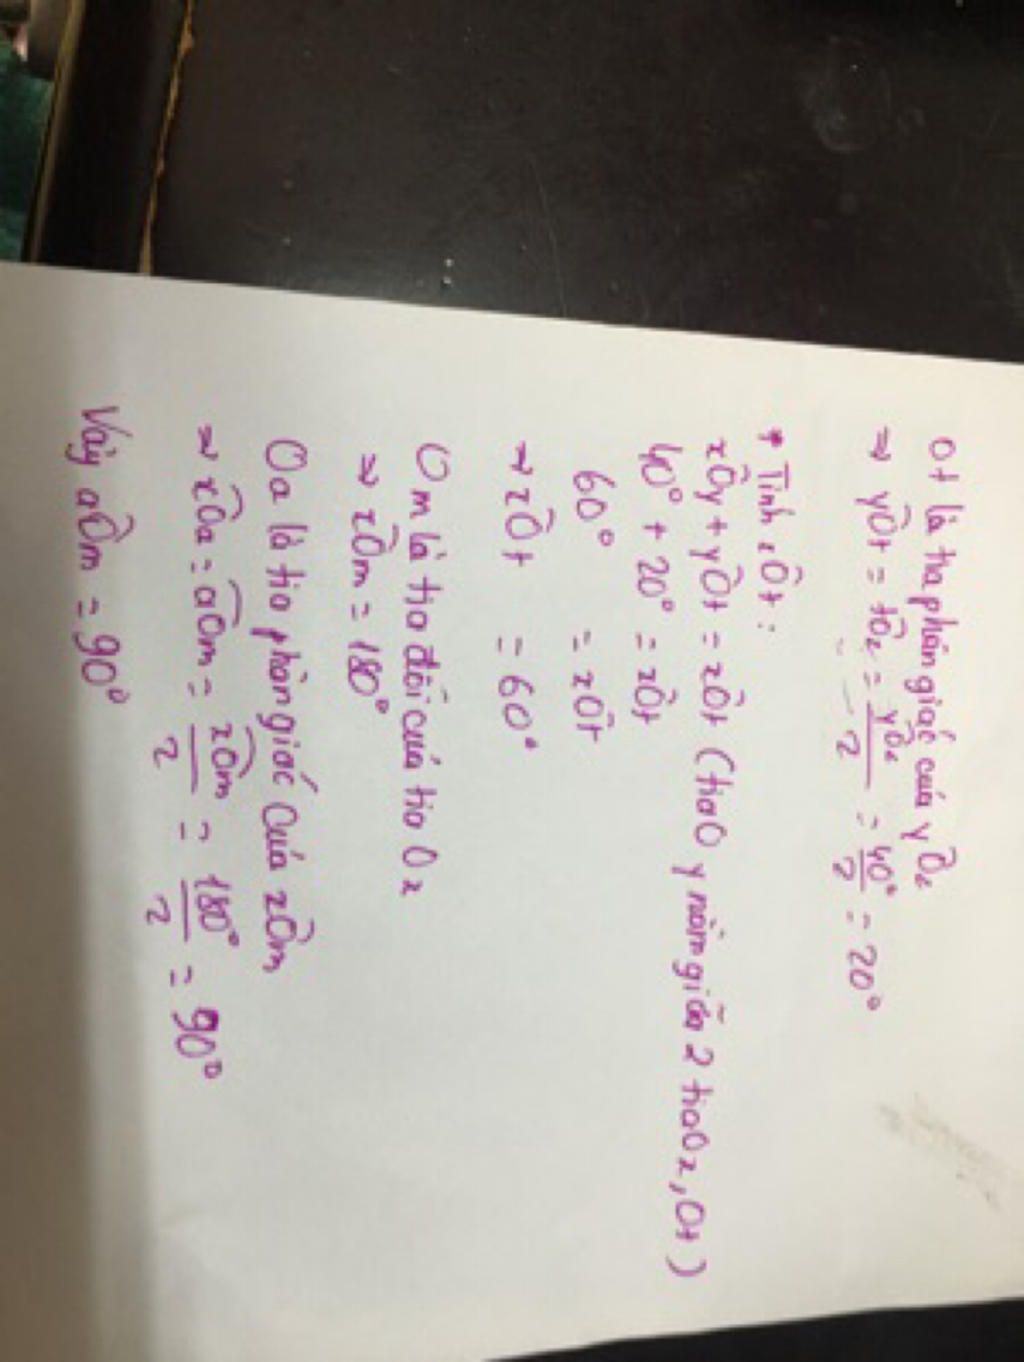 Ot là tia phân giác của yÔz
⇒ yÔt = tÔz = yÔz/2 = 40°/2 = 20°
* Tính xÔt :
xÔy + yÔt = xÔt (tia Oy nằm giữa 2 tia Ox, Ot)
40° + 20° = xÔt
60° = xÔt
⇒ xÔt = 60°
Om là tia đối của tia Ox
⇒ xÔm = 180°
Oa là tia phân giác của xÔm
⇒ xÔa = aÔm = xÔm/2 = 180°/2 = 90°
Vậy aÔm = 90°